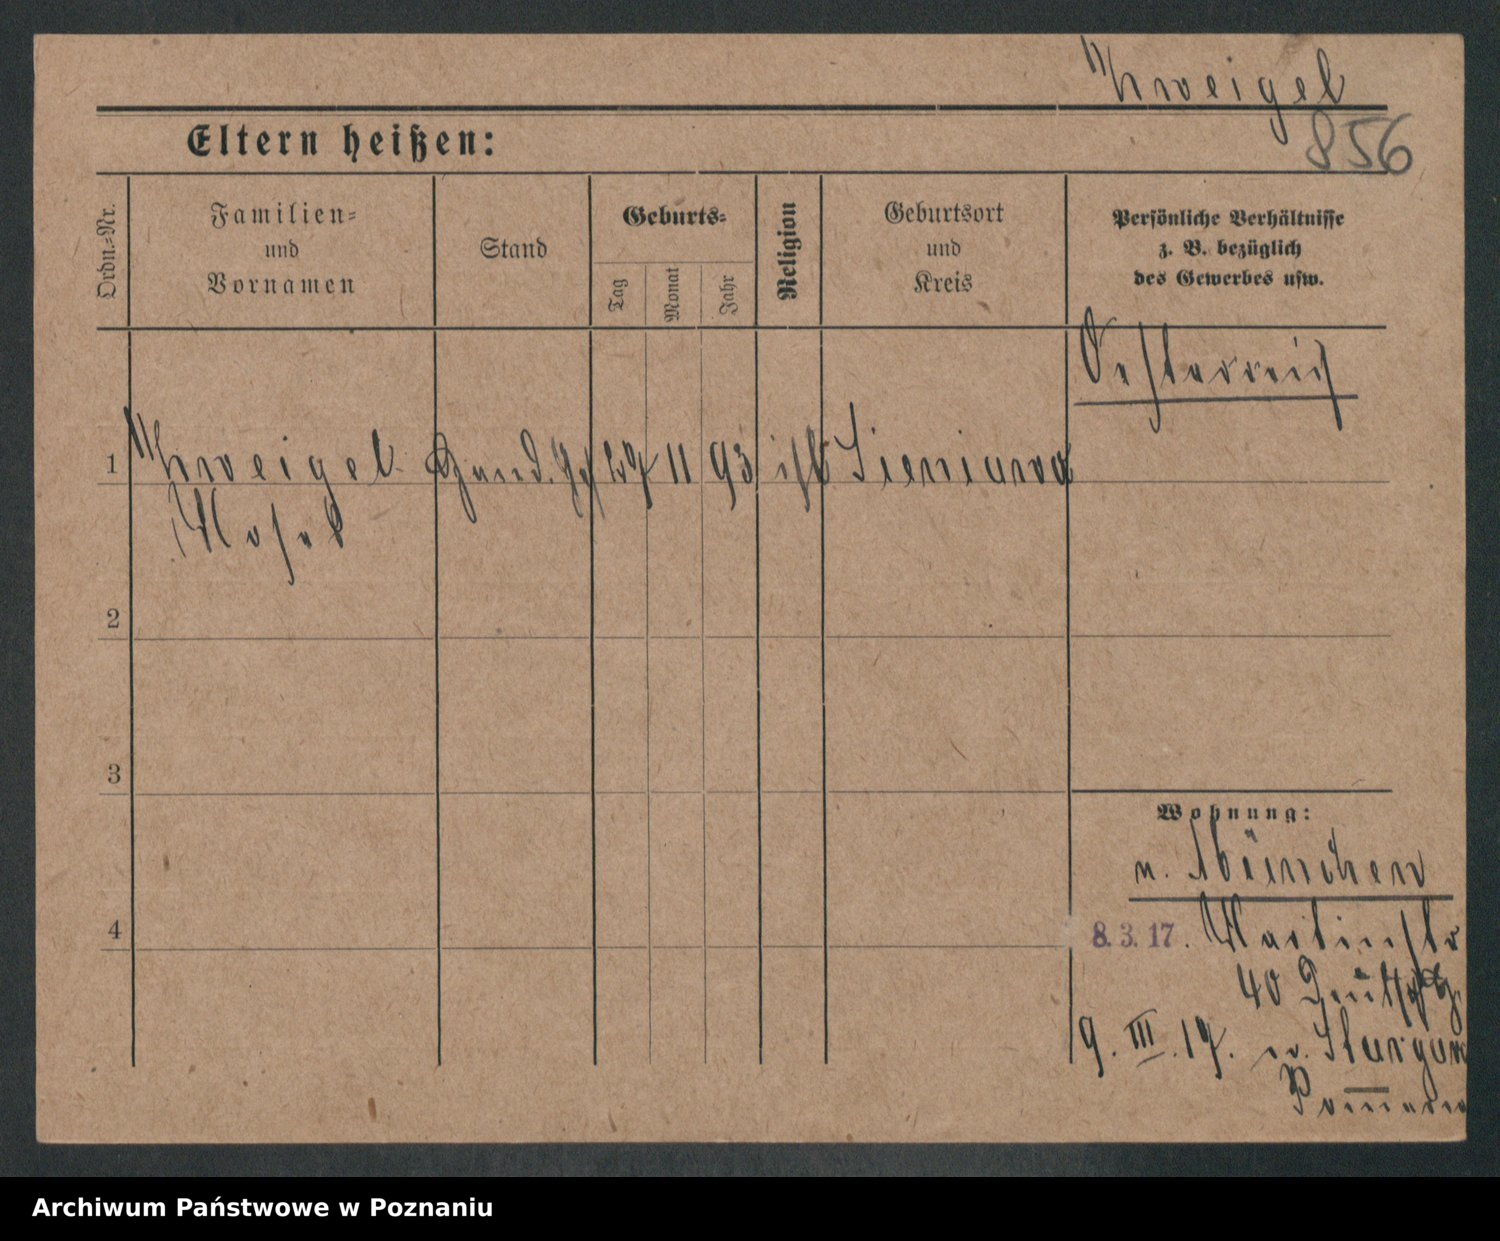 Zweigel
856
Eltern heißen:
Ordn.=Nr.
Familien=
und
Vornamen
Stand
Geburts=
Tag
Monat
Jahr
Religion
Geburtsort
und
Kreis
Persönliche Verhältnisse
z. B. bezüglich
des Gewerbes usw.
Oesterreich
1 Zweigel Hand. 27 11 93 isr Sieniawa
2
3
Wohnung:
n. München
4
8.3.17. Martinstr
40
9. III. 17. Stargard
Pommern
Archiwum Państwowe w Poznaniu